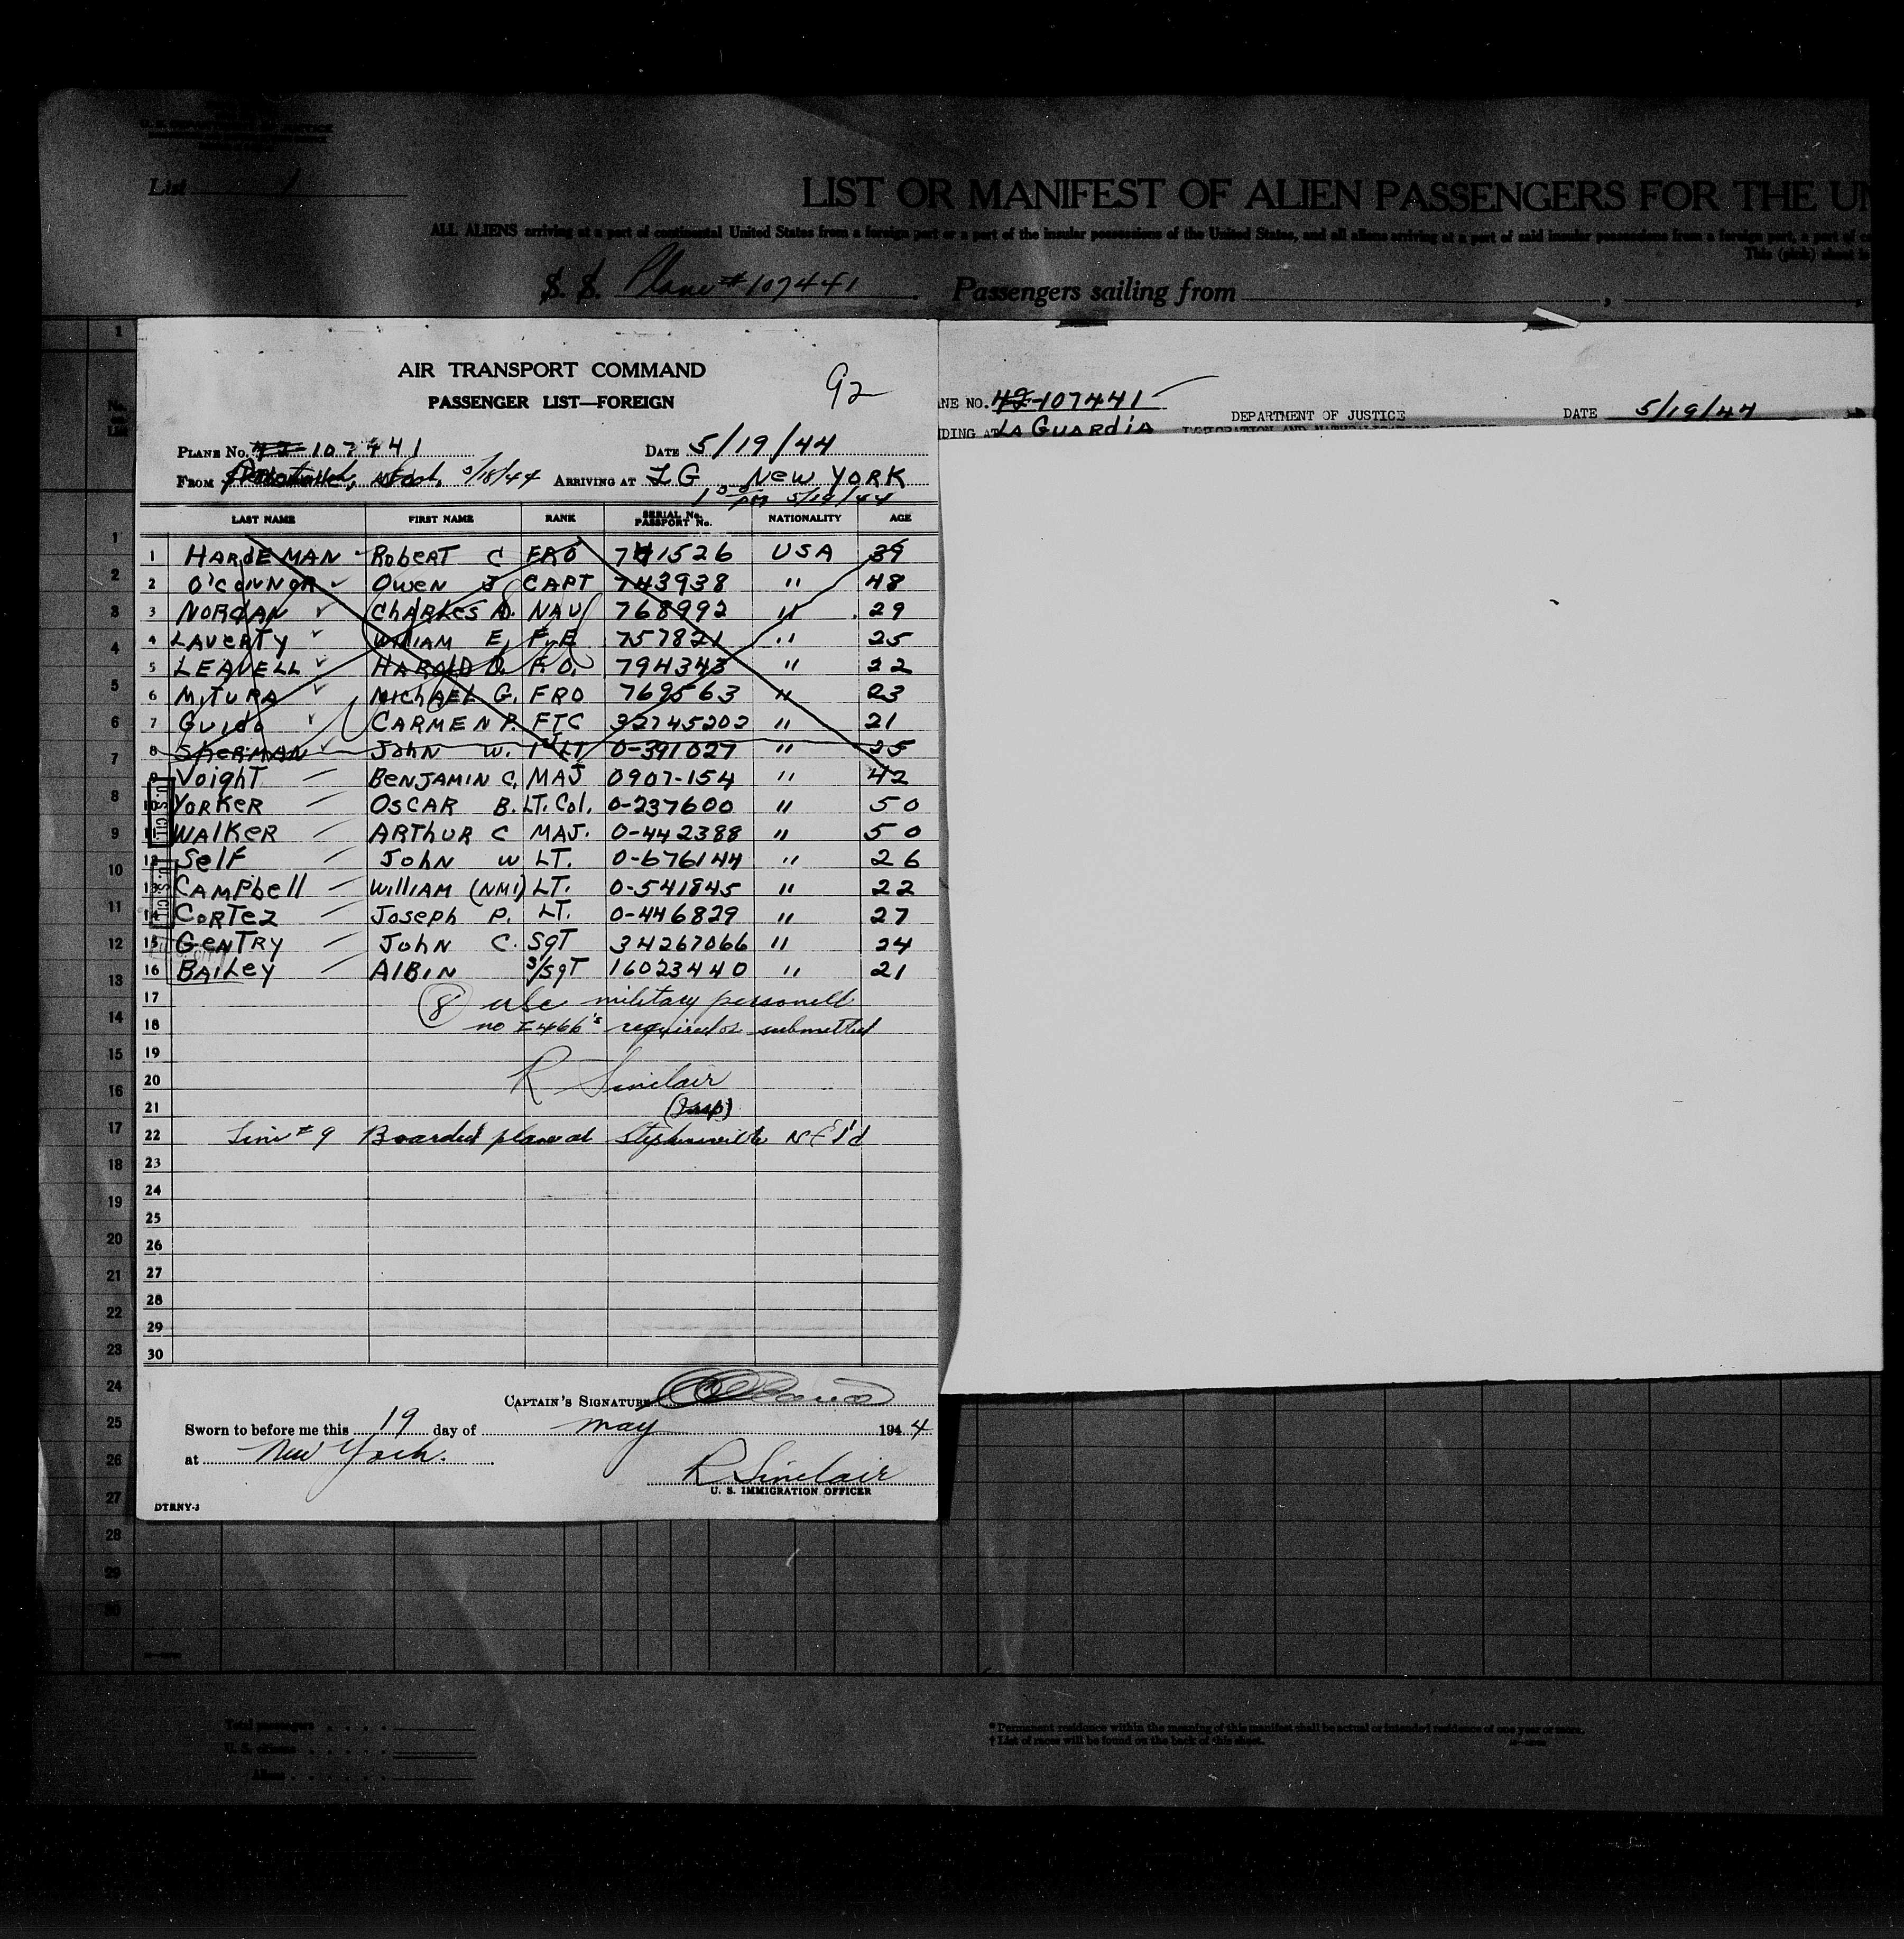 U. S. DEPARTMENT OF JUSTICE
List 1
LIST OR MANIFEST OF ALIEN PASSENGERS FOR THE UN
ALL ALIENS arriving at a port of continental United States from a foreign port or a port of the insular possessions of the United States, and all aliens arriving at a port of said insular possessions from a foreign port, a port of
This (pink) sheet is
S. S. Plane # 107441 Passengers sailing from
AIR TRANSPORT COMMAND
PASSENGER LIST—FOREIGN
92
PLANE NO. 42-107441 DATE 5/19/44
FROM 5/18/44 ARRIVING AT LG New YORK
1 00 PM 5/19/44
LAST NAME FIRST NAME RANK SERIAL No. PASSPORT No. NATIONALITY AGE
1 HARDEMAN Robert C FRO 741526 USA 39
2 O'CONNOR Owen J CAPT 743938 " 48
3 NORDAN CHARLES D. NAV 768992 " 29
4 LAVERTY William E. F.E 757821 " 25
5 LEAVELL HAROLD O. F.O. 794343 " 22
6 MITURA Michael G. FRO 769563 " 23
7 Guido CARMEN P. FTC 32745202 " 21
8 SHERMAN John W. 1st LT 0-391027 " 25
9 Voight BENJAMIN C. MAJ 0907-154 " 42
10 YORKER OSCAR B. LT. Col. 0-237600 " 50
11 WALKER ARTHUR C MAJ. 0-442388 " 50
12 Self John W LT. 0-676144 " 26
13 CAMPbell William (NMI) LT. 0-541845 " 22
14 CORTEZ Joseph P. LT. 0-446829 " 27
15 GENTRY John C. SgT 34267066 " 24
16 BAILEY AlBIN S/SgT 16023440 " 21
17 (8) usc military personell
18 no I 466's required or submitted
19
20 R Sinclair
21 (Insp)
22 Line # 9 Boarded plane at Stephenville Nf'l'd
23
24
25
26
27
28
29
30
CAPTAIN'S SIGNATURE
Sworn to before me this 19 day of May 1944
at New York.
R Sinclair
U. S. IMMIGRATION OFFICER
DTRNY-3
ANE NO. 42-107441 DEPARTMENT OF JUSTICE DATE 5/19/44
DING AT LA GUARDIA
1
No. on List
1
2
3
4
5
6
7
8
9
10
11
12
13
14
15
16
17
18
19
20
21
22
23
24
25
26
27
28
29
30
Total passengers
U. S. citizens
Aliens
* Permanent residence within the meaning of this manifest shall be actual or intended residence of one year or more.
† List of races will be found on the back of this sheet.